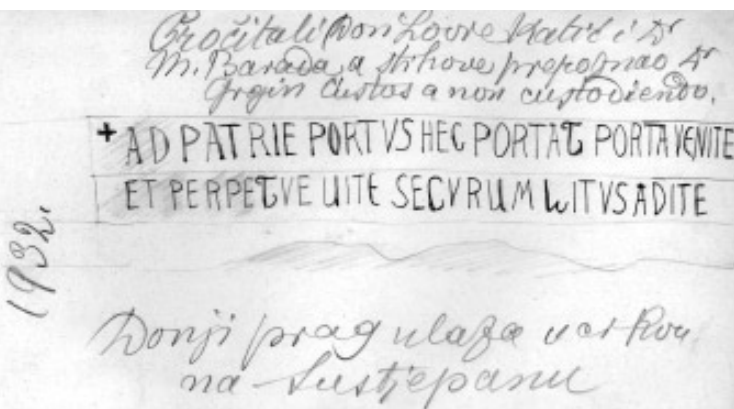 Pročitali Don Lovre Katić i Dr
M. Barada, a stihove prepoznao Dr
Grgin čustos a non custodiendo.
+ AD PATRIE PORTVS HEC PORTAT PORTA VENITE
ET PERPETVE UITE SECVRUM LITVS ADITE
1932.
Donji prag ulaza u crkvu
na Sustjepanu